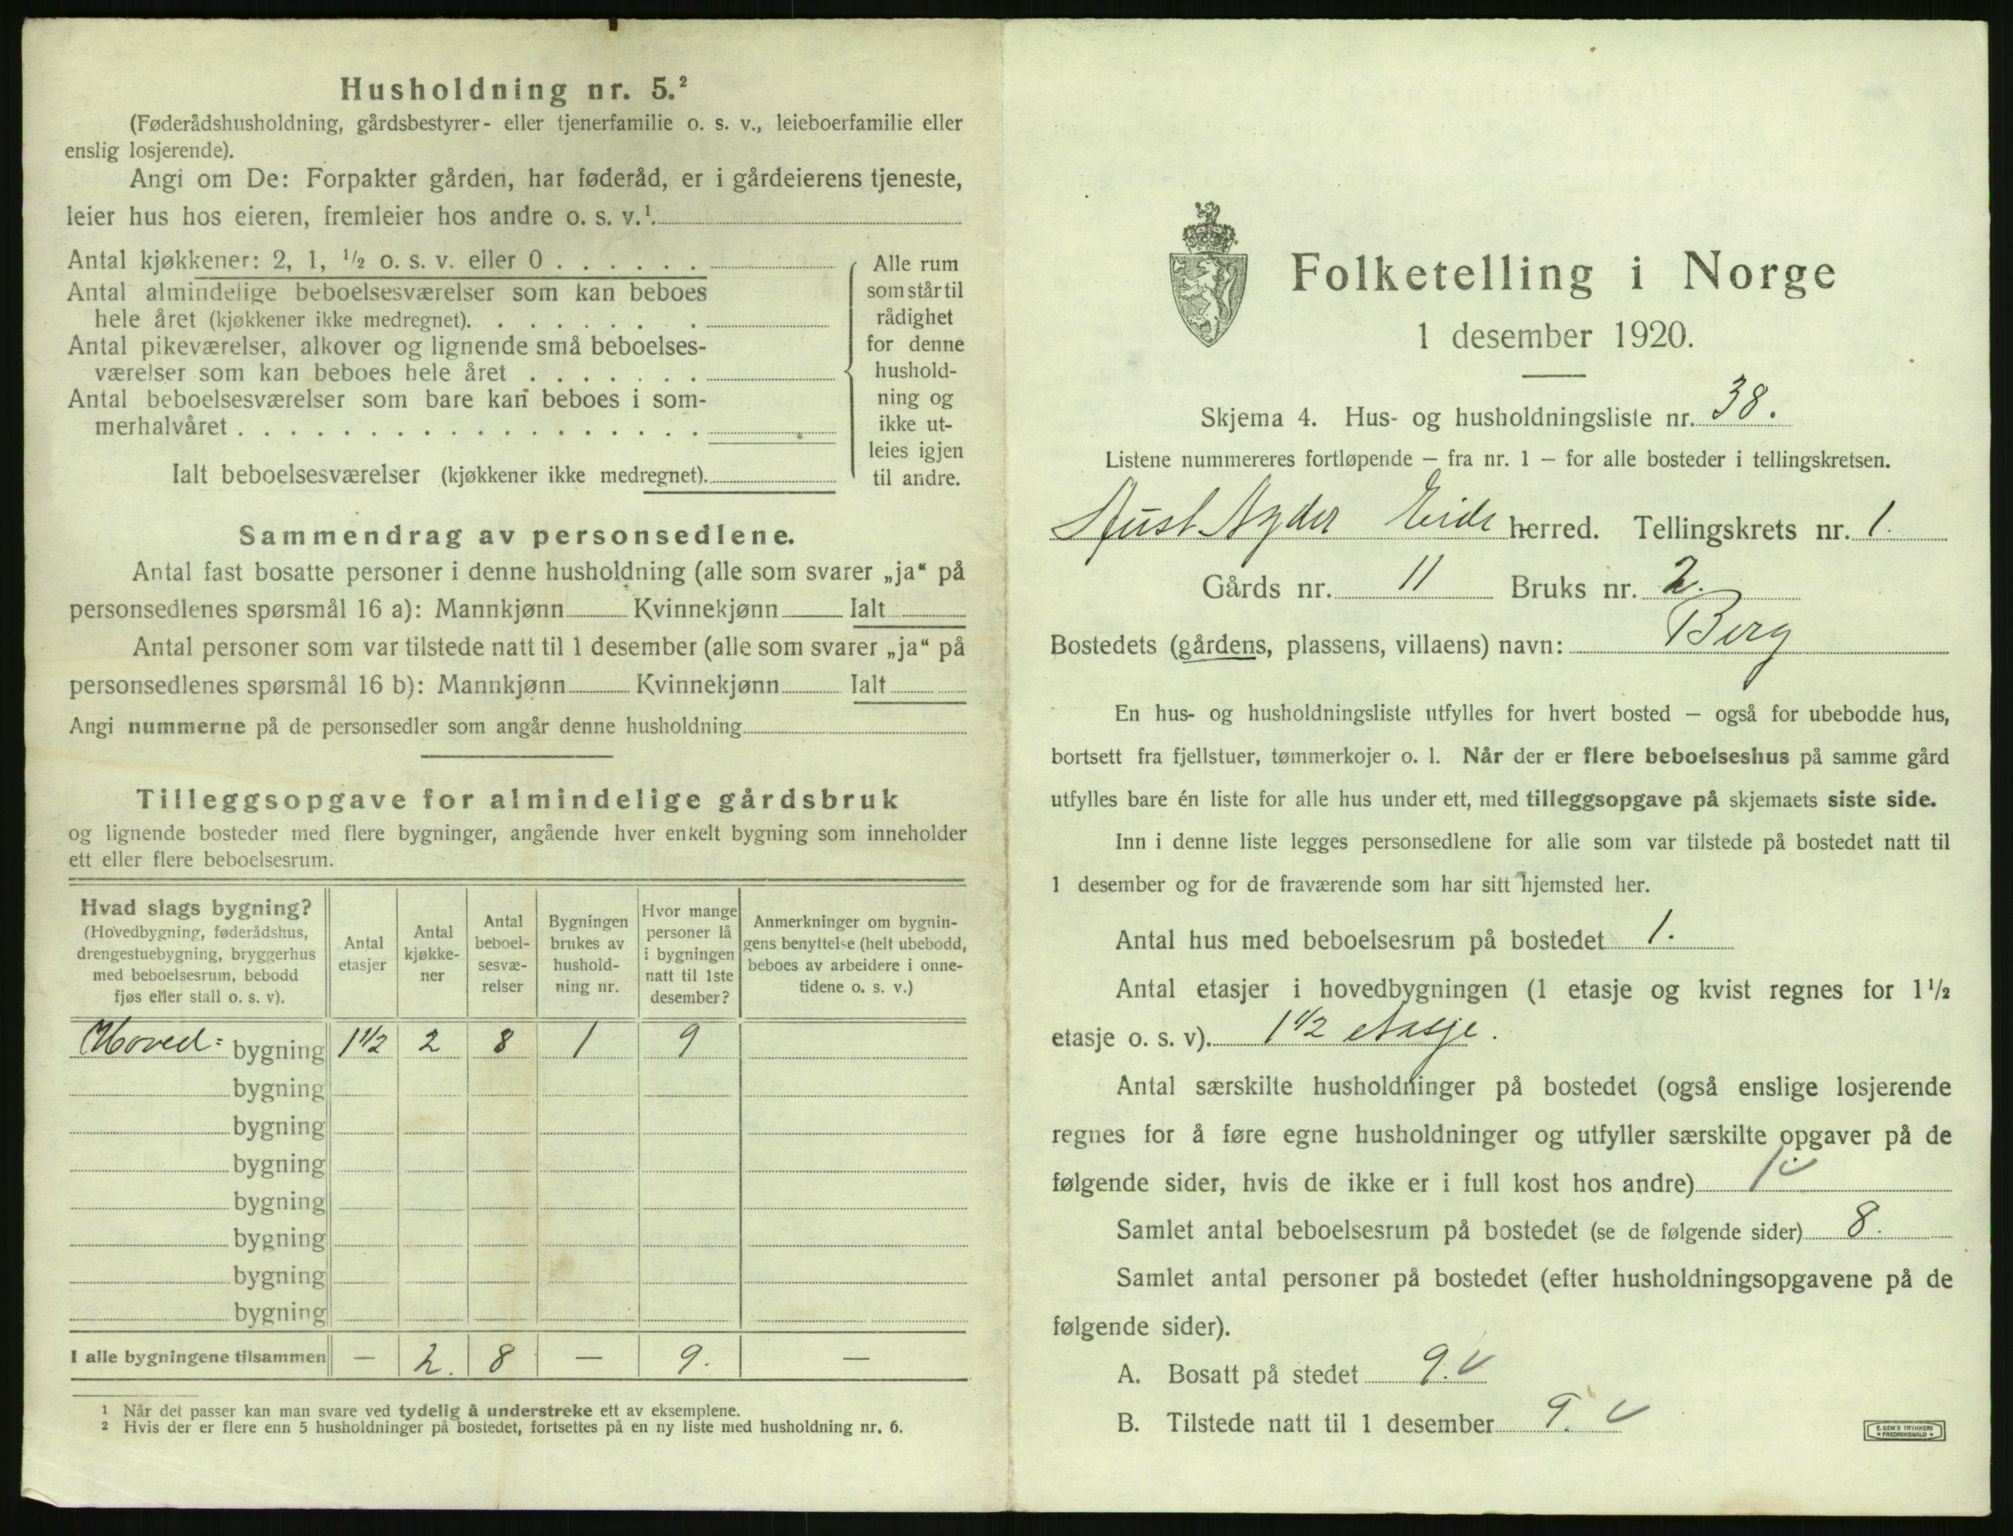 Husholdning nr. 5.²
(Føderådshusholdning, gårdsbestyrer- eller tjenerfamilie o. s. v., leieboerfamilie eller
enslig losjerende).
Angi om De: Forpakter gården, har føderåd, er i gårdeierens tjeneste,
leier hus hos eieren, fremleier hos andre o. s. v.¹
Antal kjøkkener: 2, 1, ½ o. s. v. eller 0 . . . . . .
Antal almindelige beboelsesværelser som kan beboes
hele året (kjøkkener ikke medregnet). . . . . . . . .
Antal pikeværelser, alkover og lignende små beboelses-
værelser som kan beboes hele året . . . . . . .
Antal beboelsesværelser som bare kan beboes i som-
merhalvåret . . . . . . . . . . . . . . . . . .
Ialt beboelsesværelser (kjøkkener ikke medregnet).
Alle rum
som står til
rådighet
for denne
hushold-
ning og
ikke ut-
leies igjen
til andre.
Sammendrag av personsedlene.
Antal fast bosatte personer i denne husholdning (alle som svarer „ja“ på
personsedlenes spørsmål 16 a): Mannkjønn Kvinnekjønn Ialt
Antal personer som var tilstede natt til 1 desember (alle som svarer „ja“ på
personsedlenes spørsmål 16 b): Mannkjønn Kvinnekjønn Ialt
Angi nummerne på de personsedler som angår denne husholdning
Tilleggsopgave for almindelige gårdsbruk
og lignende bosteder med flere bygninger, angående hver enkelt bygning som inneholder
ett eller flere beboelsesrum.
Hvad slags bygning?
(Hovedbygning, føderådshus,
drengestuebygning, bryggerhus
med beboelsesrum, bebodd
fjøs eller stall o. s. v).
Antal
etasjer
Antal
kjøkke-
ner
Antal
beboel-
sesvæ-
relser
Bygningen
brukes av
hushold-
ning nr.
Hvor mange
personer lå
i bygningen
natt til 1ste
desember?
Anmerkninger om bygnin-
gens benyttelse (helt ubebodd,
beboes av arbeidere i onne-
tidene o. s. v.)
Hoved= bygning 1 1/2 2 8 1 9
bygning
bygning
bygning
bygning
bygning
bygning
bygning
I alle bygningene tilsammen — 2. 8 — 9. —
¹ Når det passer kan man svare ved tydelig å understreke ett av eksemplene.
² Hvis der er flere enn 5 husholdninger på bostedet, fortsettes på en ny liste med husholdning nr. 6.
Folketelling i Norge
1 desember 1920.
Skjema 4. Hus- og husholdningsliste nr. 38.
Listene nummereres fortløpende – fra nr. 1 – for alle bosteder i tellingskretsen.
Aust Agder Eide herred. Tellingskrets nr. 1.
Gårds nr. 11 Bruks nr. 2.
Bostedets (gårdens, plassens, villaens) navn: Berg
En hus- og husholdningsliste utfylles for hvert bosted – også for ubebodde hus,
bortsett fra fjellstuer, tømmerkojer o. l. Når der er flere beboelseshus på samme gård
utfylles bare én liste for alle hus under ett, med tilleggsopgave på skjemaets siste side.
Inn i denne liste legges personsedlene for alle som var tilstede på bostedet natt til
1 desember og for de fraværende som har sitt hjemsted her.
Antal hus med beboelsesrum på bostedet 1.
Antal etasjer i hovedbygningen (1 etasje og kvist regnes for 1½
etasje o. s. v). 1 1/2 etasje.
Antal særskilte husholdninger på bostedet (også enslige losjerende
regnes for å føre egne husholdninger og utfyller særskilte opgaver på de
følgende sider, hvis de ikke er i full kost hos andre) 1.
Samlet antal beboelsesrum på bostedet (se de følgende sider) 8.
Samlet antal personer på bostedet (efter husholdningsopgavene på de
følgende sider).
A. Bosatt på stedet 9.
B. Tilstede natt til 1 desember 9.
E. SEM'S TRYKKERI
FREDRIKSHALD